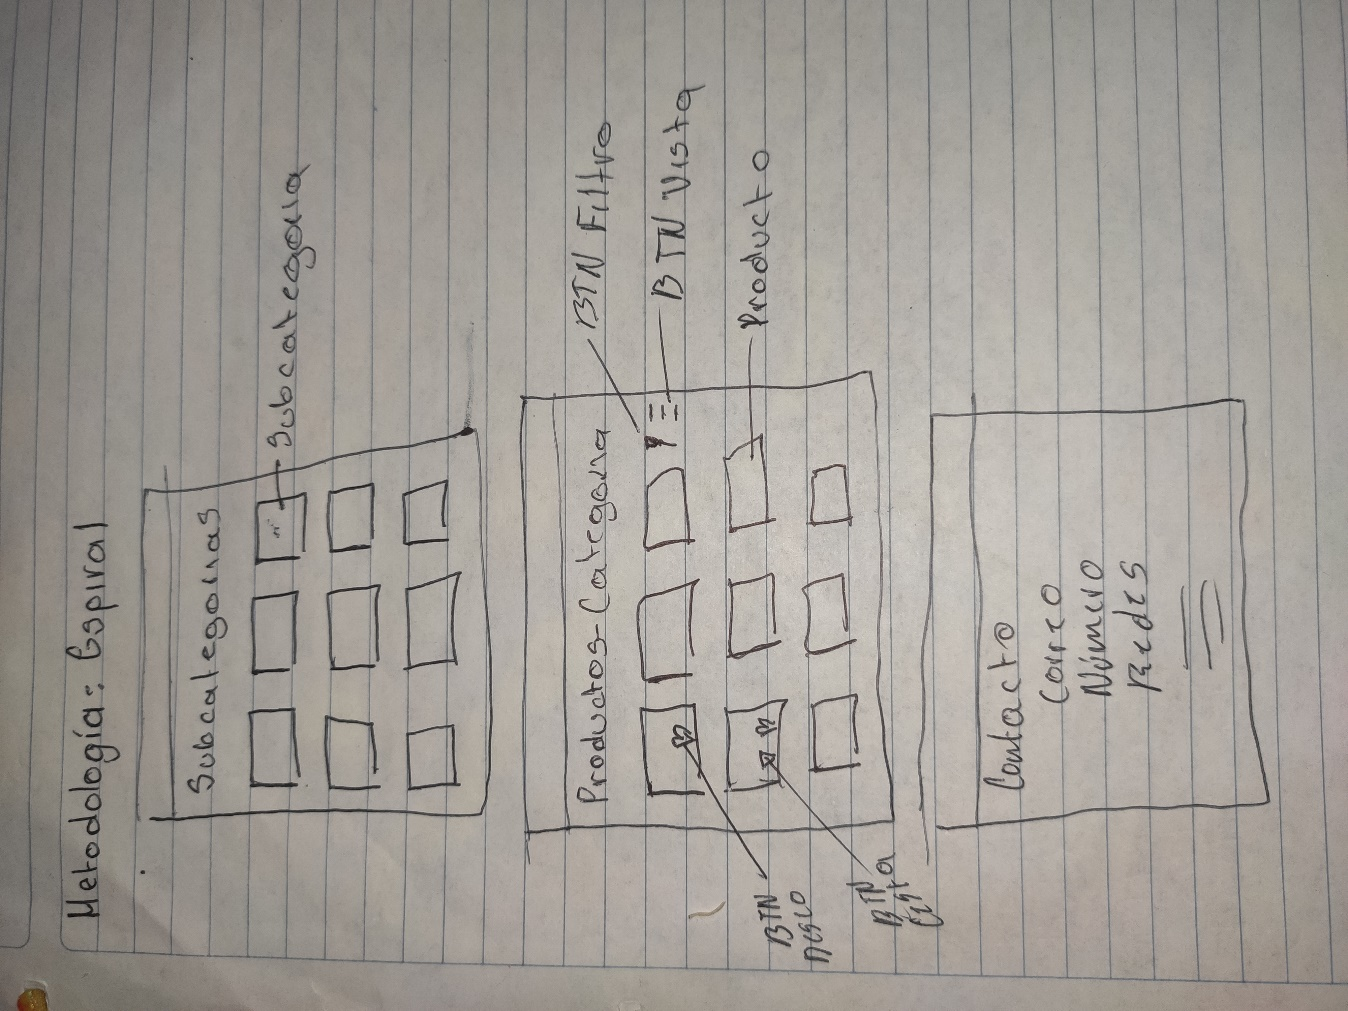 Metodología: Espiral
Subcategorias
Subcategoria
Productos-Categoria
BTN Filtro
BTN Vista
Producto
BTN
BTN
Contacto
Correo
Número
Redes